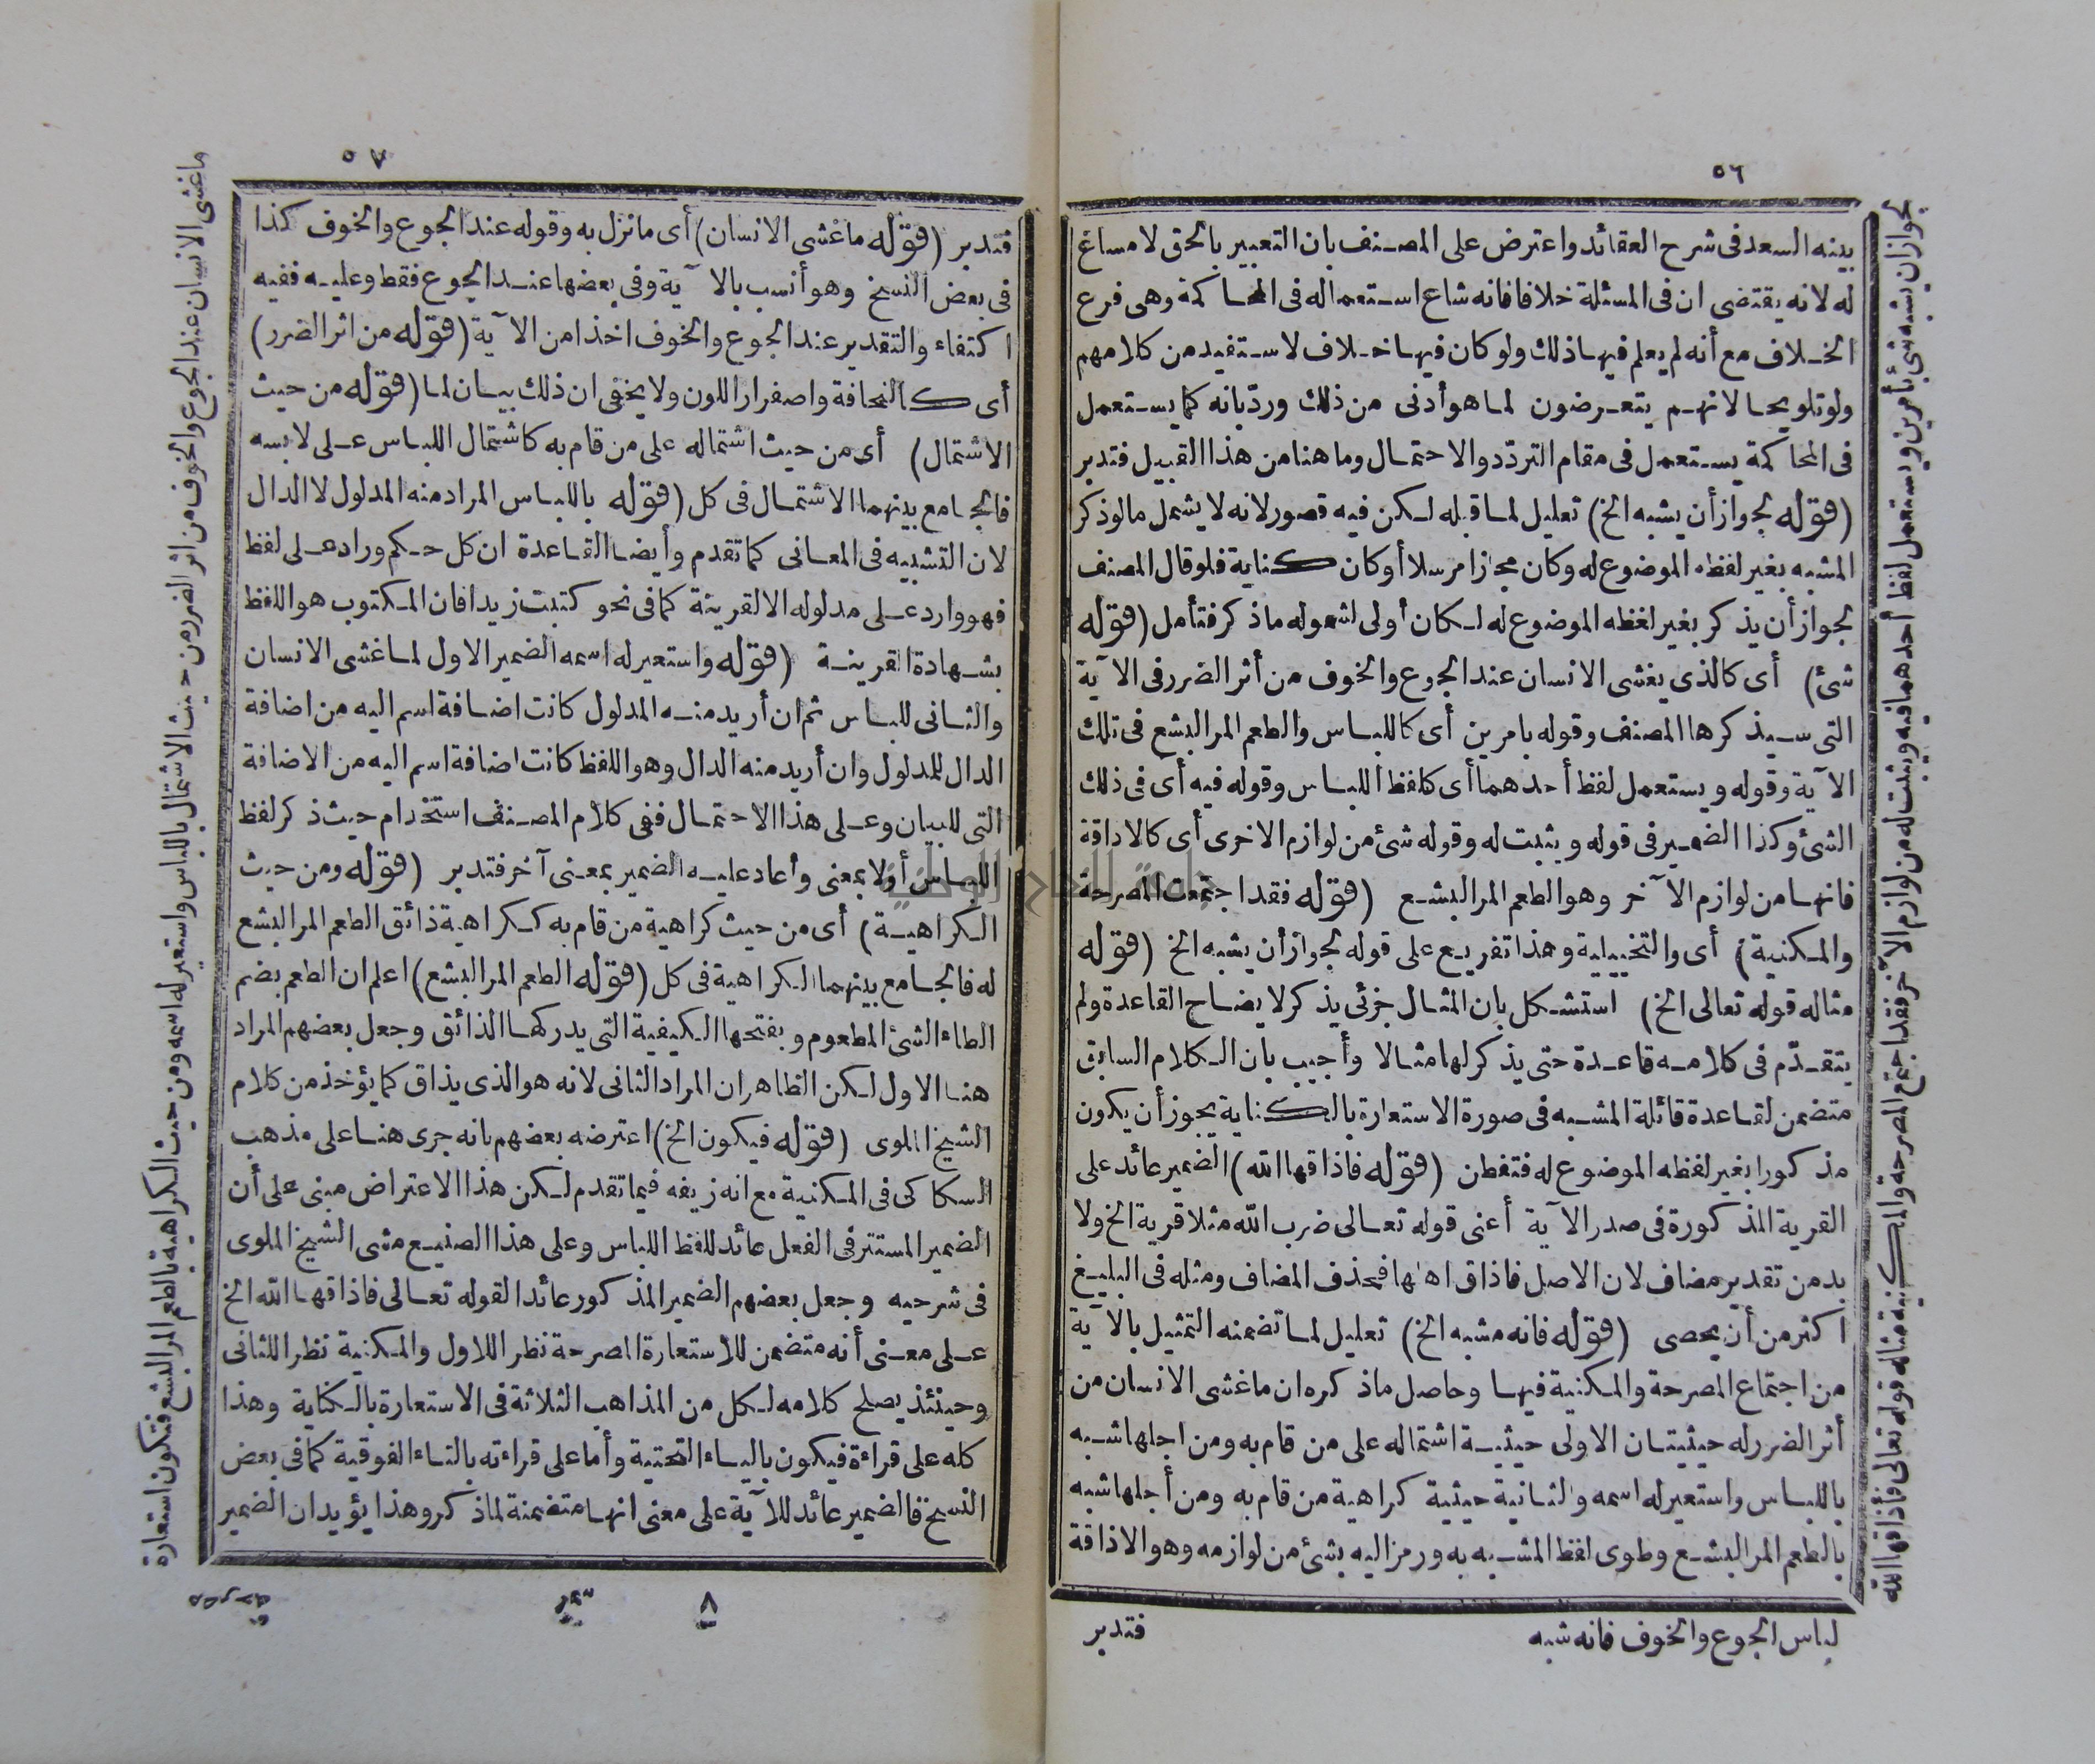 ٥٦
بينه السعد فى شرح العقائد واعترض على المصنف بان التعبير بالحق لا مساغ
له لانه يقتضى ان فى المسئلة خلافا فانه شاع استعماله فى المحاكمة وهى فرع
الخلاف مع أنه لم يعلم فيها ذلك ولو كان فيها خلاف لاستفيد من كلامهم
ولو تلويحا لانهم يتعرضون لما هو أدنى من ذلك وردّ بانه كما يستعمل
فى المحاكمة يستعمل فى مقام التردّد والاحتمال وما هنا من هذا القبيل فتدبر
(قوله لجواز أن يشبه الخ) تعليل لما قبله لكن فيه قصور لانه لا يشمل ما لو ذكر
المشبه بغير لفظه الموضوع له وكان مجازا مرسلا أو كان كناية فلو قال المصنف
لجواز أن يذكر بغير لفظه الموضوع له لكان أولى لشموله ما ذكر فتأمل (قوله
شئ) أى كالذى يغشى الانسان عند الجوع والخوف من أثر الضرر فى الآية
التى سيذكرها المصنف وقوله بامرين أى كاللباس والطعم المر البشع فى تلك
الآية وقوله ويستعمل لفظ أحدهما أى كلفظ اللباس وقوله فيه أى فى ذلك
الشئ وكذا الضمير فى قوله ويثبت له وقوله شئ من لوازم الاخرى أى كالاذاقة
فانها من لوازم الآخر وهو الطعم المر البشع (قوله فقد اجتمعت المصرحة
والمكنية) أى والتخييلية وهذا تفريع على قوله لجواز أن يشبه الخ (قوله
مثاله قوله تعالى الخ) استشكل بان المثال جزئى يذكر لايضاح القاعدة ولم
يتقدّم فى كلامه قاعدة حتى يذكر لها مثالا وأجيب بان الكلام السابق
متضمن لقاعدة قائلة المشبه فى صورة الاستعارة بالكناية يجوز أن يكون
مذكورا بغير لفظه الموضوع له فتفطن (قوله فاذاقها الله) الضمير عائد على
القرية المذكورة فى صدر الآية أعنى قوله تعالى ضرب الله مثلا قرية الخ ولا
بد من تقدير مضاف لان الاصل فاذاق اهلها فحذف المضاف ومثله فى البليغ
اكثر من أن يحصى (قوله فانه مشبه الخ) تعليل لما تضمنه التمثيل بالآية
من اجتماع المصرحة والمكنية فيها وحاصل ما ذكره ان ما غشى الانسان من
أثر الضرر له حيثيتان الاولى حيثية اشتماله على من قام به ومن اجلها شبه
باللباس واستعير له اسمه والثانية حيثية كراهية من قام به ومن أجلها شبه
بالطعم المر البشع وطوى لفظ المشبه به ورمز اليه بشئ من لوازمه وهو الاذاقة
فتدبر
لجواز ان يشبه شئ بأمرين ويستعمل لفظ أحدهما فيه ويثبت له من لوازم الآخر فقد اجتمع المصرحة والمكنية مثاله قوله تعالى فأذاقها الله
لباس الجوع والخوف فانه شبه
٥٧
فتدبر (قوله ما غشى الانسان) أى ما نزل به وقوله عند الجوع والخوف كذا
فى بعض النسخ وهو أنسب بالآية وفى بعضها عند الجوع فقط وعليه ففيه
اكتفاء والتقدير عند الجوع والخوف اخذا من الآية (قوله من اثر الضرر)
أى كالنحافة واصفرار اللون ولا يخفى ان ذلك بيان لما (قوله من حيث
الاشتمال) أى من حيث اشتماله على من قام به كاشتمال اللباس على لابسه
فالجامع بينهما الاشتمال فى كل (قوله باللباس المراد منه المدلول لا الدال
لان التشبيه فى المعانى كما تقدم وأيضا القاعدة ان كل حكم وراد على لفظ
فهو وارد على مدلوله الا لقرينة كما فى نحو كتبت زيدا فان المكتوب هو اللفظ
بشهادة القرينة (قوله واستعير له اسمه الضمير الاول لما غشى الانسان
والثانى للباس ثم ان أريد منه المدلول كانت اضافة اسم اليه من اضافة
الدال للمدلول وان أريد منه الدال وهو اللفظ كانت اضافة اسم اليه من الاضافة
التى للبيان وعلى هذا الاحتمال ففى كلام المصنف استخدام حيث ذكر لفظ
اللباس أولا بمعنى وأعاد عليه الضمير بمعنى آخر فتدبر (قوله ومن حيث
الكراهية) أى من حيث كراهية من قام به ككراهية ذائق الطعم المر البشع
له فالجامع بينهما الكراهية فى كل (قوله الطعم المر البشع) اعلم ان الطعم بضم
الطاء الشئ المطعوم وبفتحها الكيفية التى يدركها الذائق وجعل بعضهم المراد
هنا الاول لكن الظاهر ان المراد الثانى لانه هو الذى يذاق كما يؤخذ من كلام
الشيخ الملوى (قوله فيكون الخ) اعترضه بعضهم بانه جرى هنا على مذهب
السكاكى فى المكنية مع انه زيفه فيما تقدم لكن هذا الاعتراض مبنى على أن
الضمير المستتر فى الفعل عائد للفظ اللباس وعلى هذا الصنيع مشى الشيخ الملوى
فى شرحيه وجعل بعضهم الضمير المذكور عائدا لقوله تعالى فاذاقها الله الخ
على معنى أنه متضمن للاستعارة المصرحة نظر اللاول والمكنية نظر اللثانى
وحينئذ يصلح كلامه لكل من المذاهب الثلاثة فى الاستعارة بالكناية وهذا
كله على قراءة فيكون بالياء التحتية وأما على قراءته بالتاء الفوقية كما فى بعض
النسخ فالضمير عائد للآية على معنى انها متضمنة لما ذكر وهذا يؤيد ان الضمير
ما غشى الانسان عند الجوع والخوف من اثر الضرر من حيث الاشتمال باللباس واستعير له اسمه ومن حيث الكراهية بالطعم المر البشع فتكون استعارة
مصرحة
٨
جامعة النجاح الوطنية